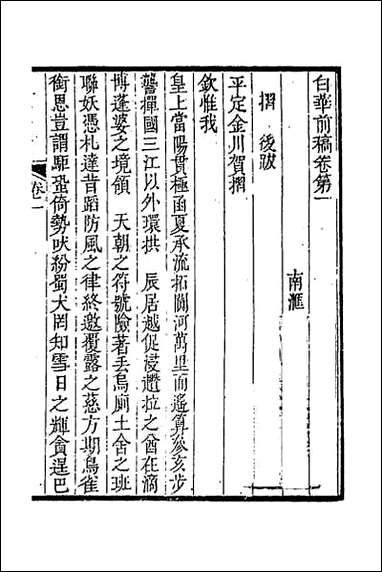 白華前稿卷第一
南滙
摺 後跋
平定金川賀摺
欽惟我
皇上當陽貫極函夏承流拓關河萬里而遙算參亥步
讋撣國三江以外環拱 辰居越促浸攢拉之酋在滴
博蓬婆之境領 天朝之符號險著丟烏厠土舍之班
聯妖憑札達昔蹈防風之律終邀覆露之慈方期鳥雀
銜恩豈謂駏蛩倚勢吠紛蜀犬罔知雪日之輝貪逞巴
卷一